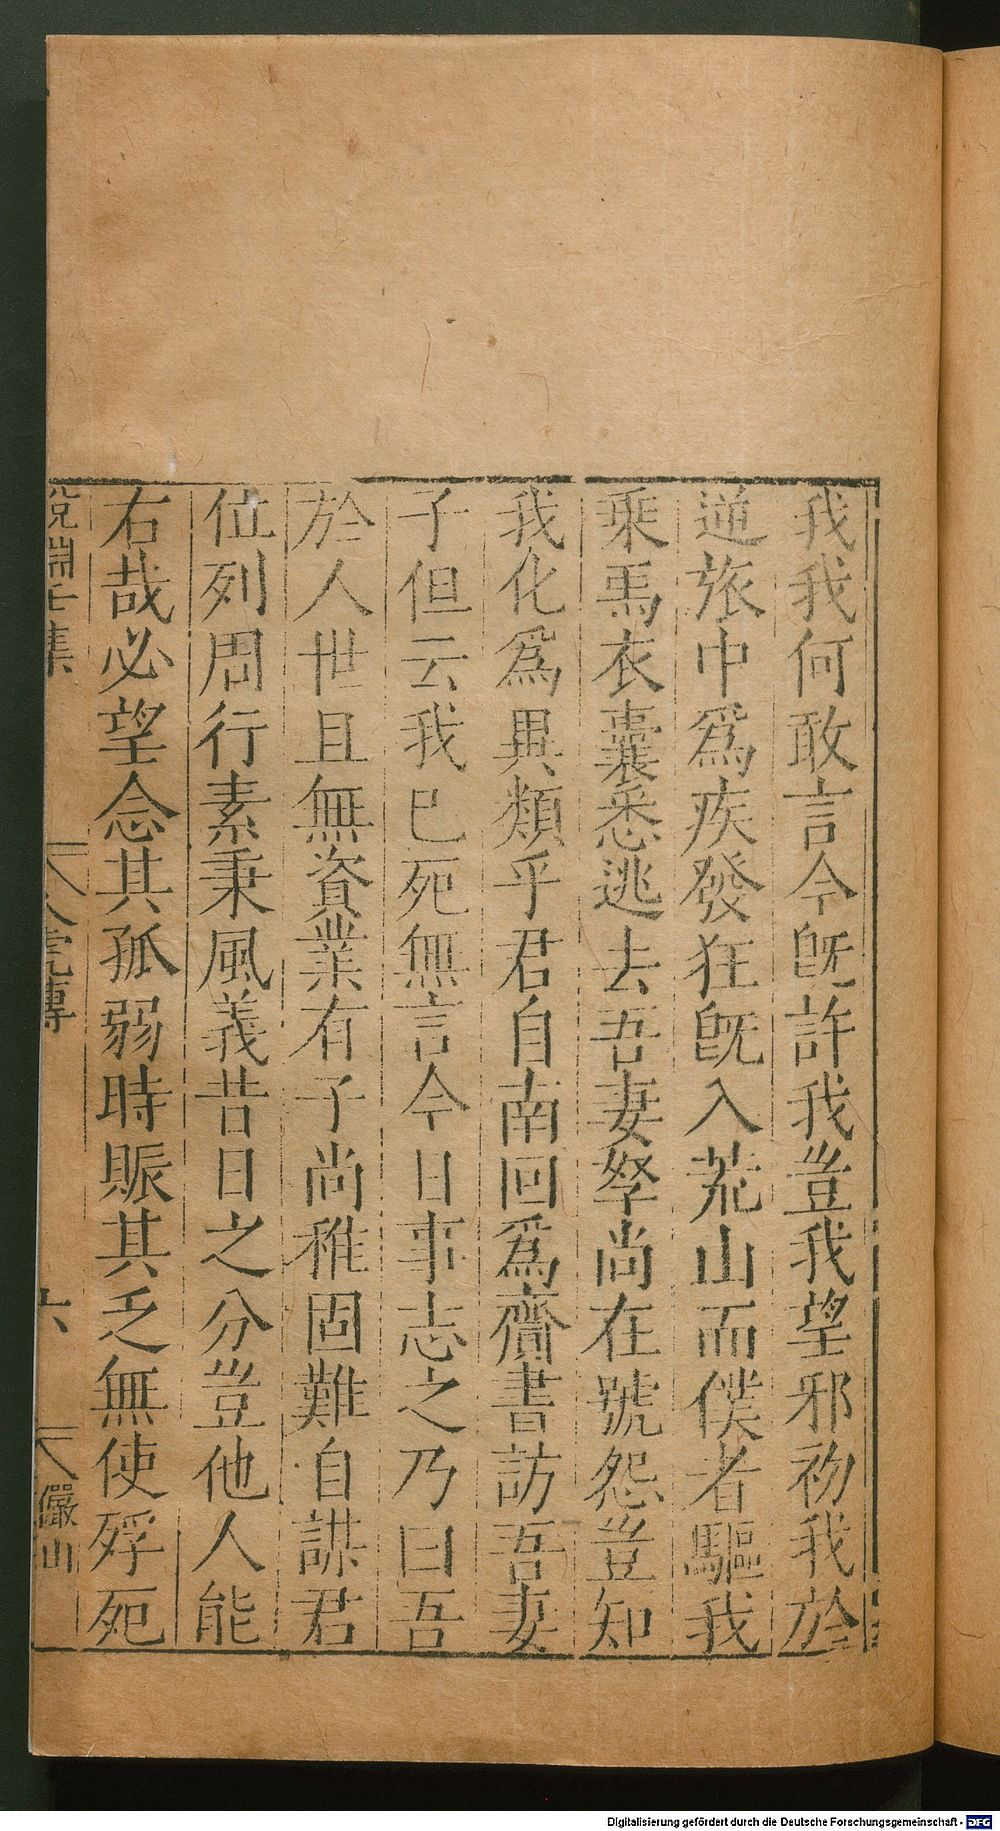 我我何敢言今旣許我豈我望邪初我於
逆旅中爲疾發狂旣入荒山而僕者驅我
乘馬衣囊悉逃去吾妻孥尚在號怨豈知
我化爲異類乎君自南回爲齎書訪吾妻
子但云我已死無言今日事志之乃曰吾
於人世且無資業有子尚稚固難自謀君
位列周行素秉風義昔日之分豈他人能
右哉必望念其孤弱時賑其乏無使殍死
說淵七集
人虎傳
六
儼山
Digitalisierung gefördert durch die Deutsche Forschungsgemeinschaft - DFG